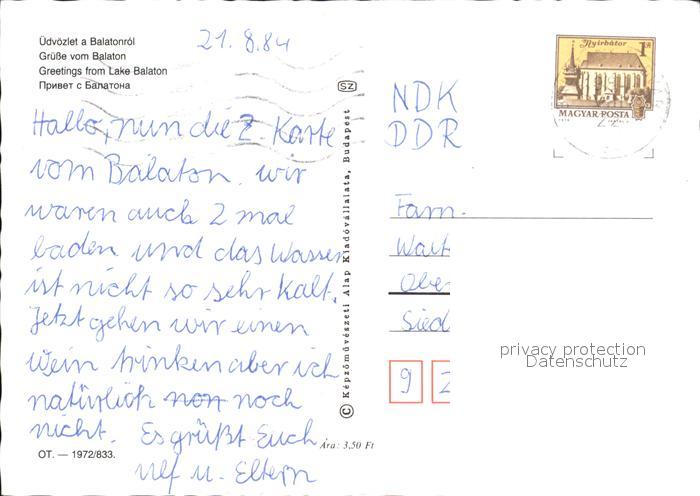 Üdvözlet a Balatonról
Grüße vom Balaton
Greetings from Lake Balaton
Привет с Балатона
21.8.84
Hallo, nun die 2. Karte
vom Balaton. wir
waren auch 2 mal
baden und das Wasser
ist nicht so sehr kalt.
Jetzt gehen wir einen
Wein trinken aber ich
natürlich non noch
nicht. Es grüßt Euch
Ulf u. Eltern
OT. — 1972/833.
Ára: 3,50 Ft
SZ
© Képzőművészeti Alap Kiadóvállalata, Budapest
Nyírbátor
1 Ft
MAGYAR POSTA
NDK
DDR
Fam.
Walt
Ober
Sied
9 2
privacy protection
Datenschutz